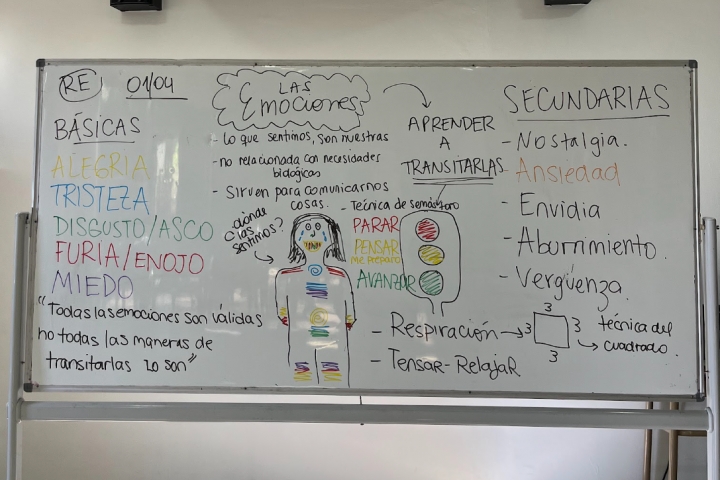 RE 01/04
LAS
Emociones
BÁSICAS
ALEGRIA
TRISTEZA
DISGUSTO/ASCO
FURIA/ENOJO
MIEDO
"Todas las emociones son válidas
no todas las maneras de
transitarlas lo son"
- Lo que sentimos, son nuestras
- no relacionada con necesidades
biológicas
- Sirven para comunicarnos
cosas.
¿dónde
las
sentimos?
APRENDER
A
TRANSITARLAS
- Técnica de semáforo
PARAR
PENSAR
ME PREPARO
AVANZAR
- Respiración
3
3 3
3
técnica del
cuadrado.
- Tensar-Relajar
SECUNDARIAS
- Nostalgia.
- Ansiedad
- Envidia
- Aburrimiento.
- Vergüenza.